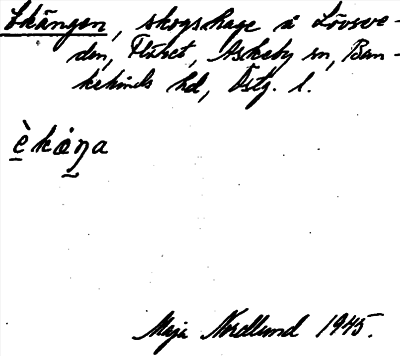 Ekängen, skogshage å Lövsve-
den, Flähet, Askeby sn, Ban-
kekinds hd, Östg. l.
è̱kåŋa
Maja Nordlund 1945.